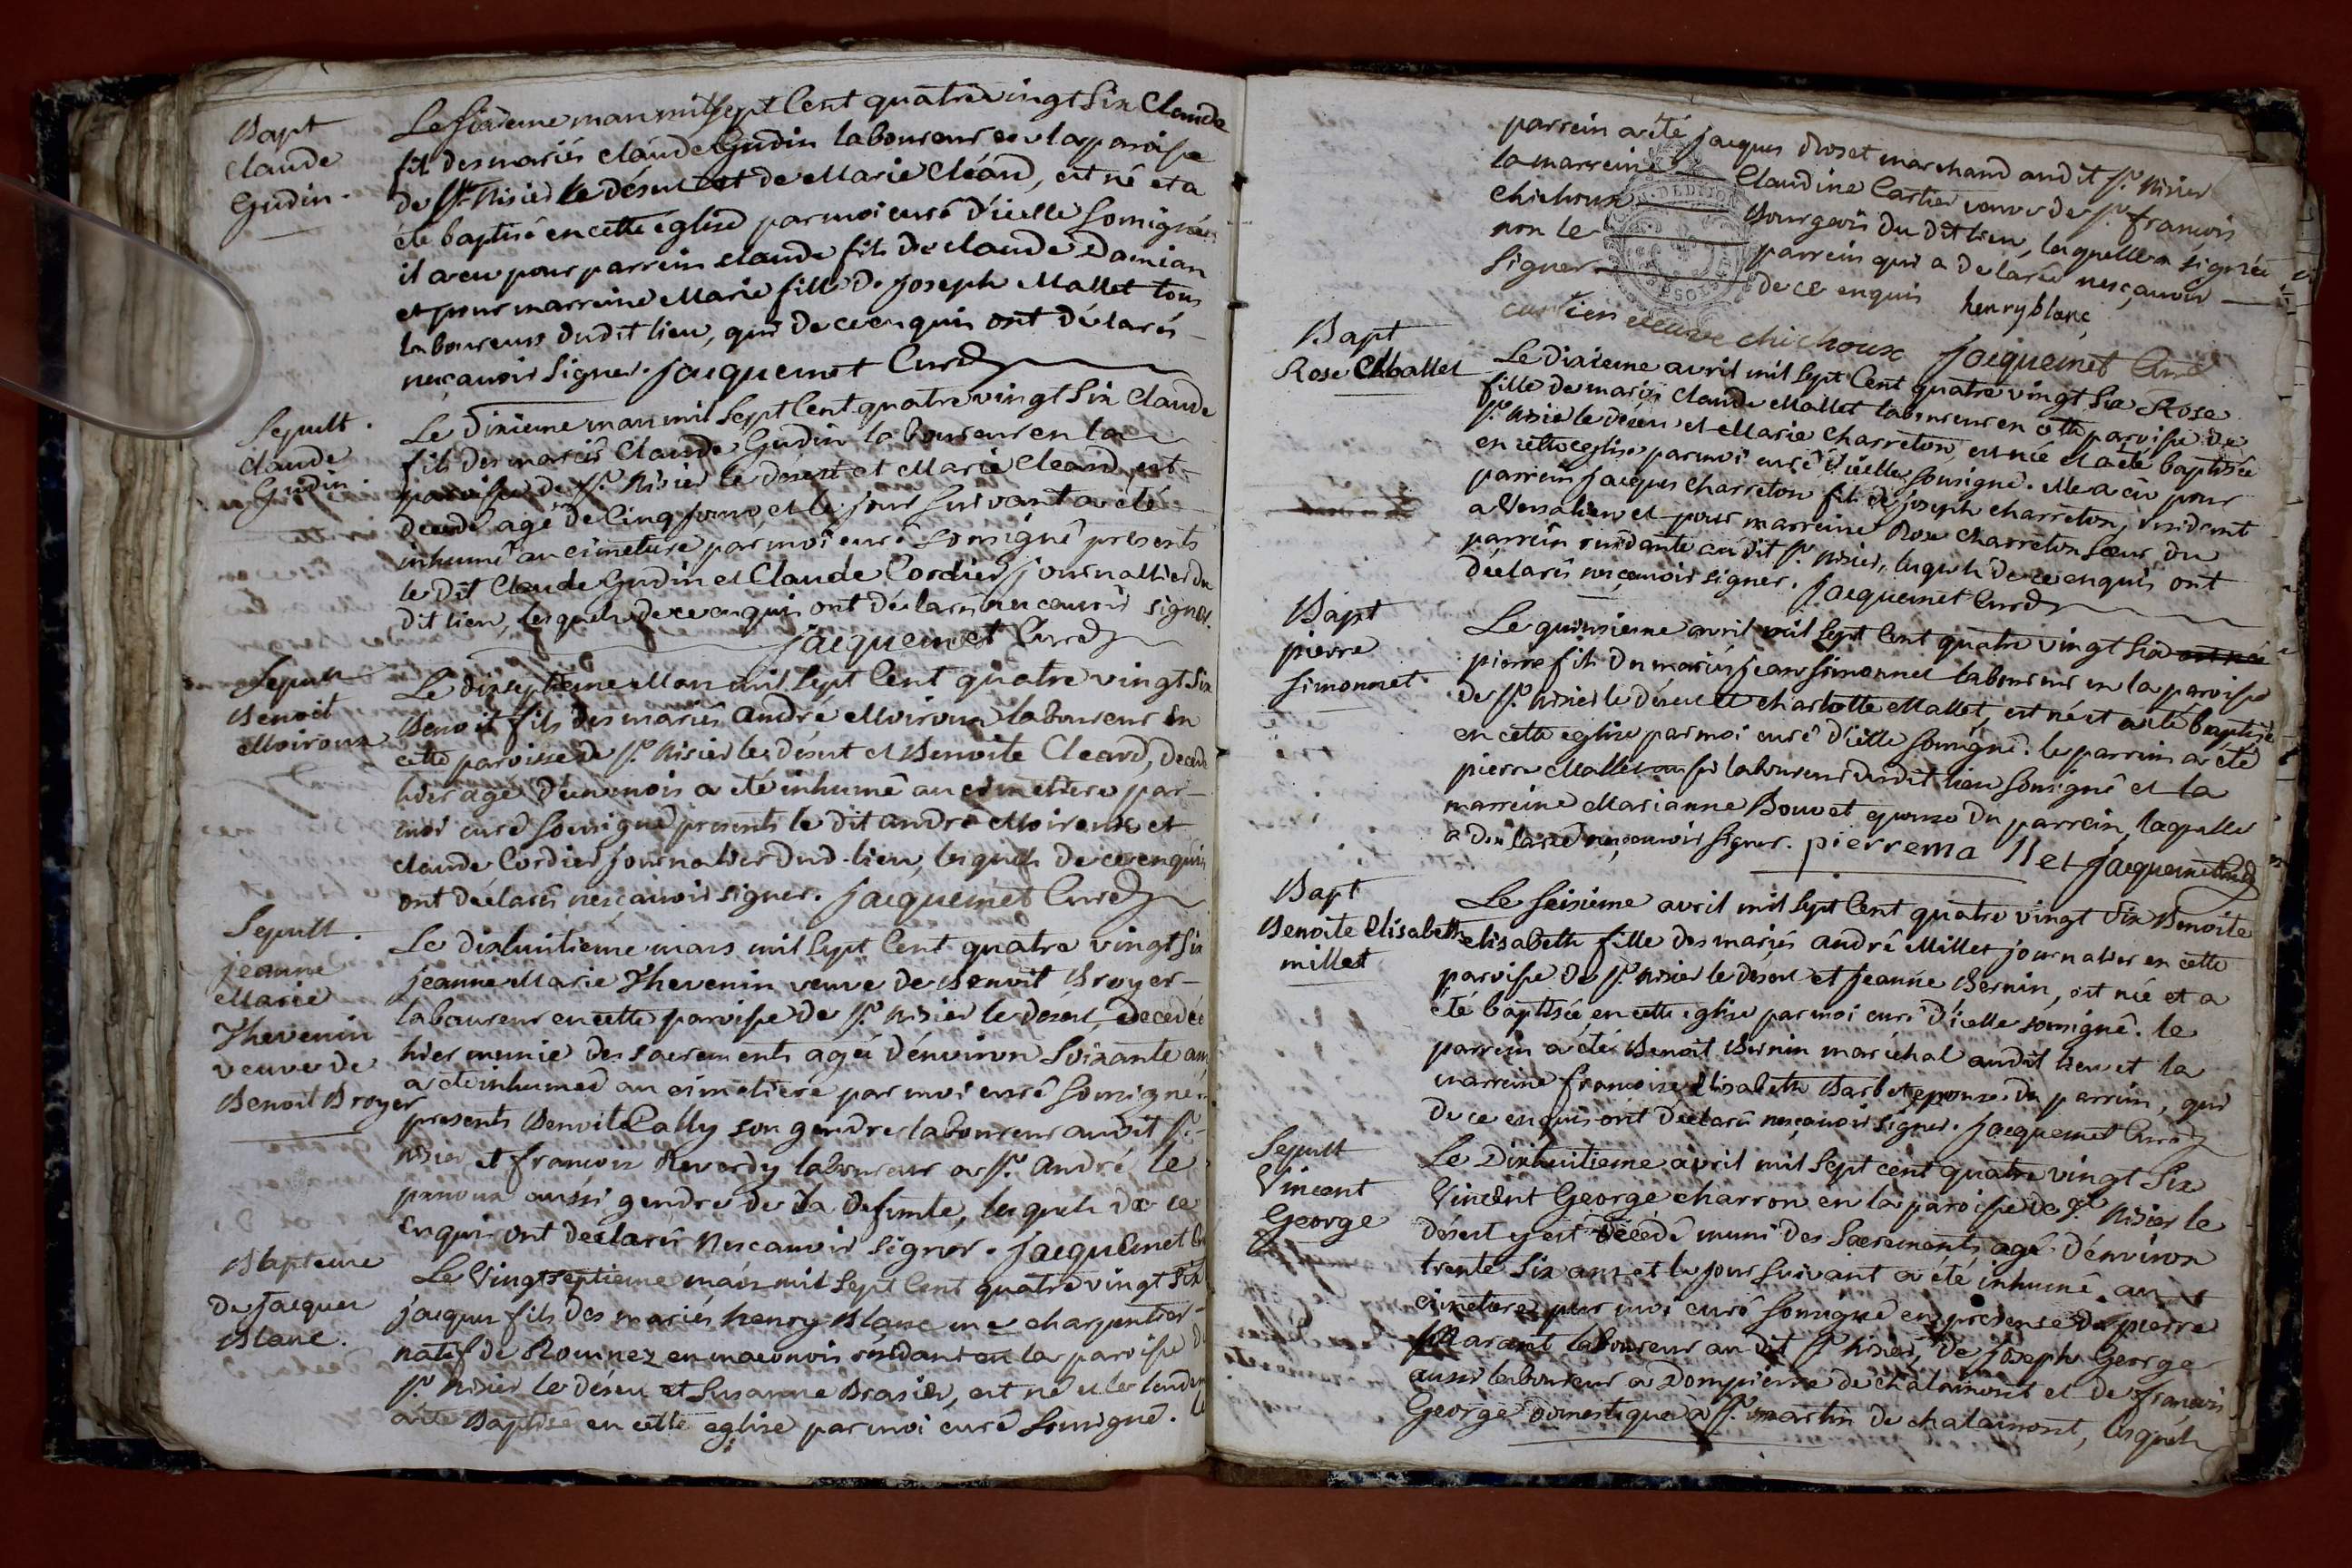 Bapt
Claude
Gudin.
Le sixieme mars mil sept Cent quatre vingt Six Claude
fils des mariés claude Gudin laboureur en la paroisse
de St. Nisier le désert et de Marie Cléard, est né et a
été baptisé en cette église par moi curé d'icelle Sousigné
il a eu pour parrein claude fils de claude Damian
et pour marreine Marie fille de joseph Mallet tous
laboureurs dudit lieu, qui de ce enquis ont déclarés
nesçavoir signer. jacquemet Curé
Sepult.
Claude
Gudin.
Le dixieme mars mil sept Cent quatre vingt Six Claude
fils des mariés Claude Gudin laboureur en la
paroisse de St. Nisier le desert et Marie Cleard, est
decedé agé de Cinq jours, et le jour suivant a été
inhumé au cimetiere par moi curé sousigné presents
le dit Claude Gudin et Claude Cordier journallier du
dit lieu, lesquels de ce enquis ont déclarés nesçavoir signer.
jacquemet Curé
Sepult
Benoit
Moiroux
Le dixseptieme Mars mil sept Cent quatre vingt Six
Benoit fils des mariés andré Moiroux laboureur en
cette paroisse de St. Nisier le désert et Benoite Cleard, decedé
hier agé d'un mois a été inhumé au cimetiere par
moi curé sousigné presents le dit andré Moiroux et
claude Cordier journalier dud. lieu, lesquels de ce enquis
ont déclarés nesçavoir signer. jacquemet Curé
Sepult.
jeanne
Marie
Thevenin
veuve de
Benoit Broyer
Le dixhuitieme mars mil sept Cent quatre vingt Six
jeanne Marie Thevenin veuve de Benoit Broyer
laboureur en cette paroisse de St. Nisier le désert, decedée
hier munie des sacrements agée d'environ Soixante ans
a été inhumée au cimetiere par moi curé sousigné
presents Benoit Cally son gendre laboureur audit St.
Nisier et francois Reverdy laboureur a St. André le
panoux aussi gendre de la defunte, lesquels de ce
enquis ont déclarés nescavoir signer. jacquemet
Bapteme
de jacques
Blanc.
Le Vingtseptieme mars mil sept Cent quatre vingt Six
jacques fils des mariés henry Blanc me charpentier
natif de Romnez en maconois residant en la paroisse de
St. Nisier le désert et Susanne Brasier, est né et le lendem
a été Baptisé en cette eglise par moi curé sousigné. Le
parrein a été jacques Roset marchand audit St. Nisier
la marreine Claudine Cartier veuve de Sr. francois
Chichoux Bourgeois du dit lieu, laquelle a signée
non le parrein qui a declaré nesçavoir
signer de ce enquis henry blanc
cartier veuve chichoux jacquemet Curé
Bapt
Rose Mallet
Le Dixieme avril mil sept Cent quatre vingt Six Rose
fille de mariés claude Mallet laboureur en cette paroisse de
St. Nisier le désert et Marie Charreton, est née et a été baptisée
en cette eglise par moi curé d'icelle sousigné. elle a eu pour
parrein jacques charreton fils de joseph charreton, residant
a Versalieu et pour marreine Rose charreton sœur du
parrein residante au dit St. Nisier, lesquels de ce enquis ont
déclarés nesçavoir signer. jacquemet Curé
Bapt
pierre
Simonnet
Le quinsieme avril mil sept Cent quatre vingt Six est né
pierre fils de mariés jean Simonnet laboureur en la paroisse
de St. Nisier le désert et charlotte Mallet, est né et a été baptisé
en cette eglise par moi curé d'icelle sousigné. le parrein a été
pierre Mallet laboureur dudit lieu sousigné et la
marreine Marianne Bouvet epouse du parrein, laquelle
a declaré nesçavoir signer. pierre mallet jacquemet Curé
Bapt
Benoite Elisabeth
millet
Le seisieme avril mil sept Cent quatre vingt Six Benoite
elisabeth fille des mariés andré Millet journalier en cette
paroisse de St. Nisier le desert et jeanne Bernin, est née et a
été baptisée en cette eglise par moi curé d'icelle sousigné. le
parrein a été Benoit Bernin maréchal audit lieu et la
marreine francoise Elisabeth Barbet epouse du parrein, qui
de ce enquis ont declarés nesçavoir signer. jacquemet Curé
Sepult
Vincent
George
Le Dixhuitieme avril mil sept cent quatre vingt Six
Vincent George charron en la paroisse de St. Nisier le
désert y est décédé muni des Sacrements, agé d'environ
trente Six ans et le jour suivant a été inhumé au
cimetiere par moi curé sousigné en presence de pierre
Marant laboureur au dit St. Nisier, de joseph George
aussi laboureur a Dompierre de chalamont et de francois
George domestique a St. martin de chalamont, lesquels